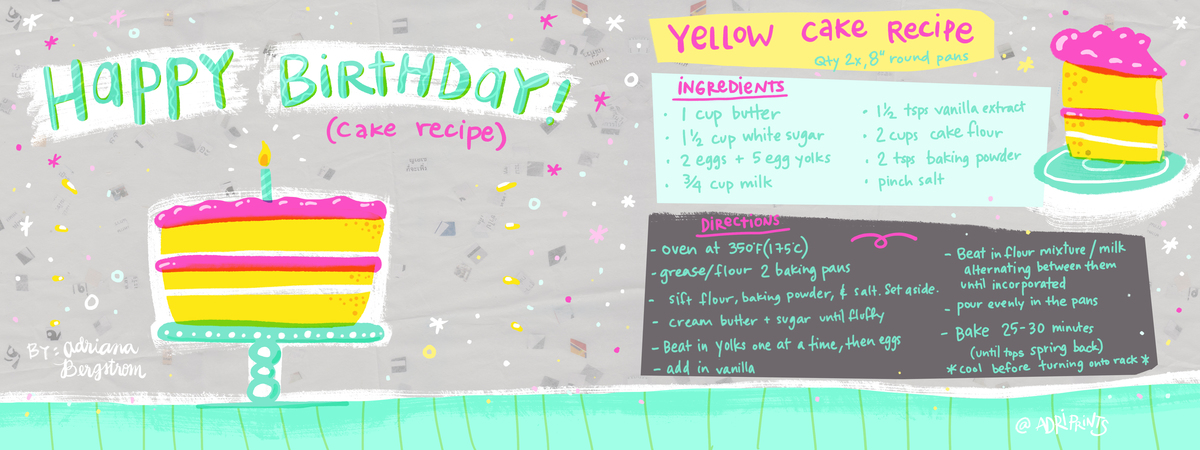 HAPPY BIRTHDAY!
(cake recipe)
BY: adriana
Bergstrom
YELLOW CAKE RECIPE
Qty 2x, 8" round pans
INGREDIENTS
· 1 cup butter
· 1½ cup white sugar
· 2 eggs + 5 egg yolks
· ¾ cup milk
· 1½ tsps vanilla extract
· 2 cups cake flour
· 2 tsps baking powder
· pinch salt
DIRECTIONS
- oven at 350°F (175°C)
- grease/flour 2 baking pans
- sift flour, baking powder, & salt. Set aside.
- cream butter + sugar until fluffy
- Beat in yolks one at a time, then eggs
- add in vanilla
- Beat in flour mixture / milk
alternating between them
until incorporated
- pour evenly in the pans
- Bake 25-30 minutes
(until tops spring back)
* cool before turning onto rack *
@ ADRIPRINTS